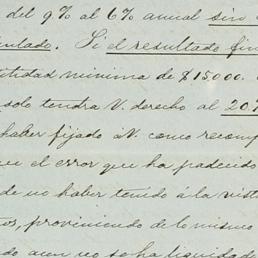 del 9% al 6% anual sin
ntado. Si el resultado fin
tidad minima de $15000.
solo tendra V. derecho al 20%
haber fijado á V. como recomp
ue el error que ha padecido
de no haber tenido á la vist
os, proviniendo de lo mismo
do aun no se ha liquidad